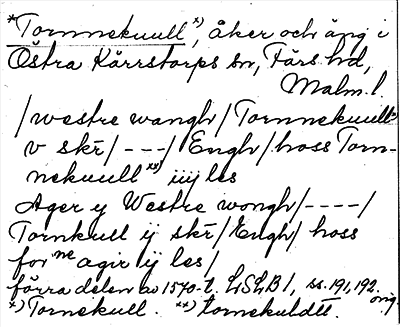 *Tornnekuull*), åker och äng i
Östra Kärrstorps sn, Färs hd,
Malm. l.
/westre wangh/ Tornnekuull*)
v skr̄/---/ Engh/ hoss Torn-
nekuull**) iiij les
Ager y Westre wongh/----/
Tornkull ij skr̄/ Engh/ hoss
for ne agir ij les/
förra delen av 1570-t. LSLB 1, ss. 191, 192.
orig.
*) Tornekull. **) tornekuldtt.